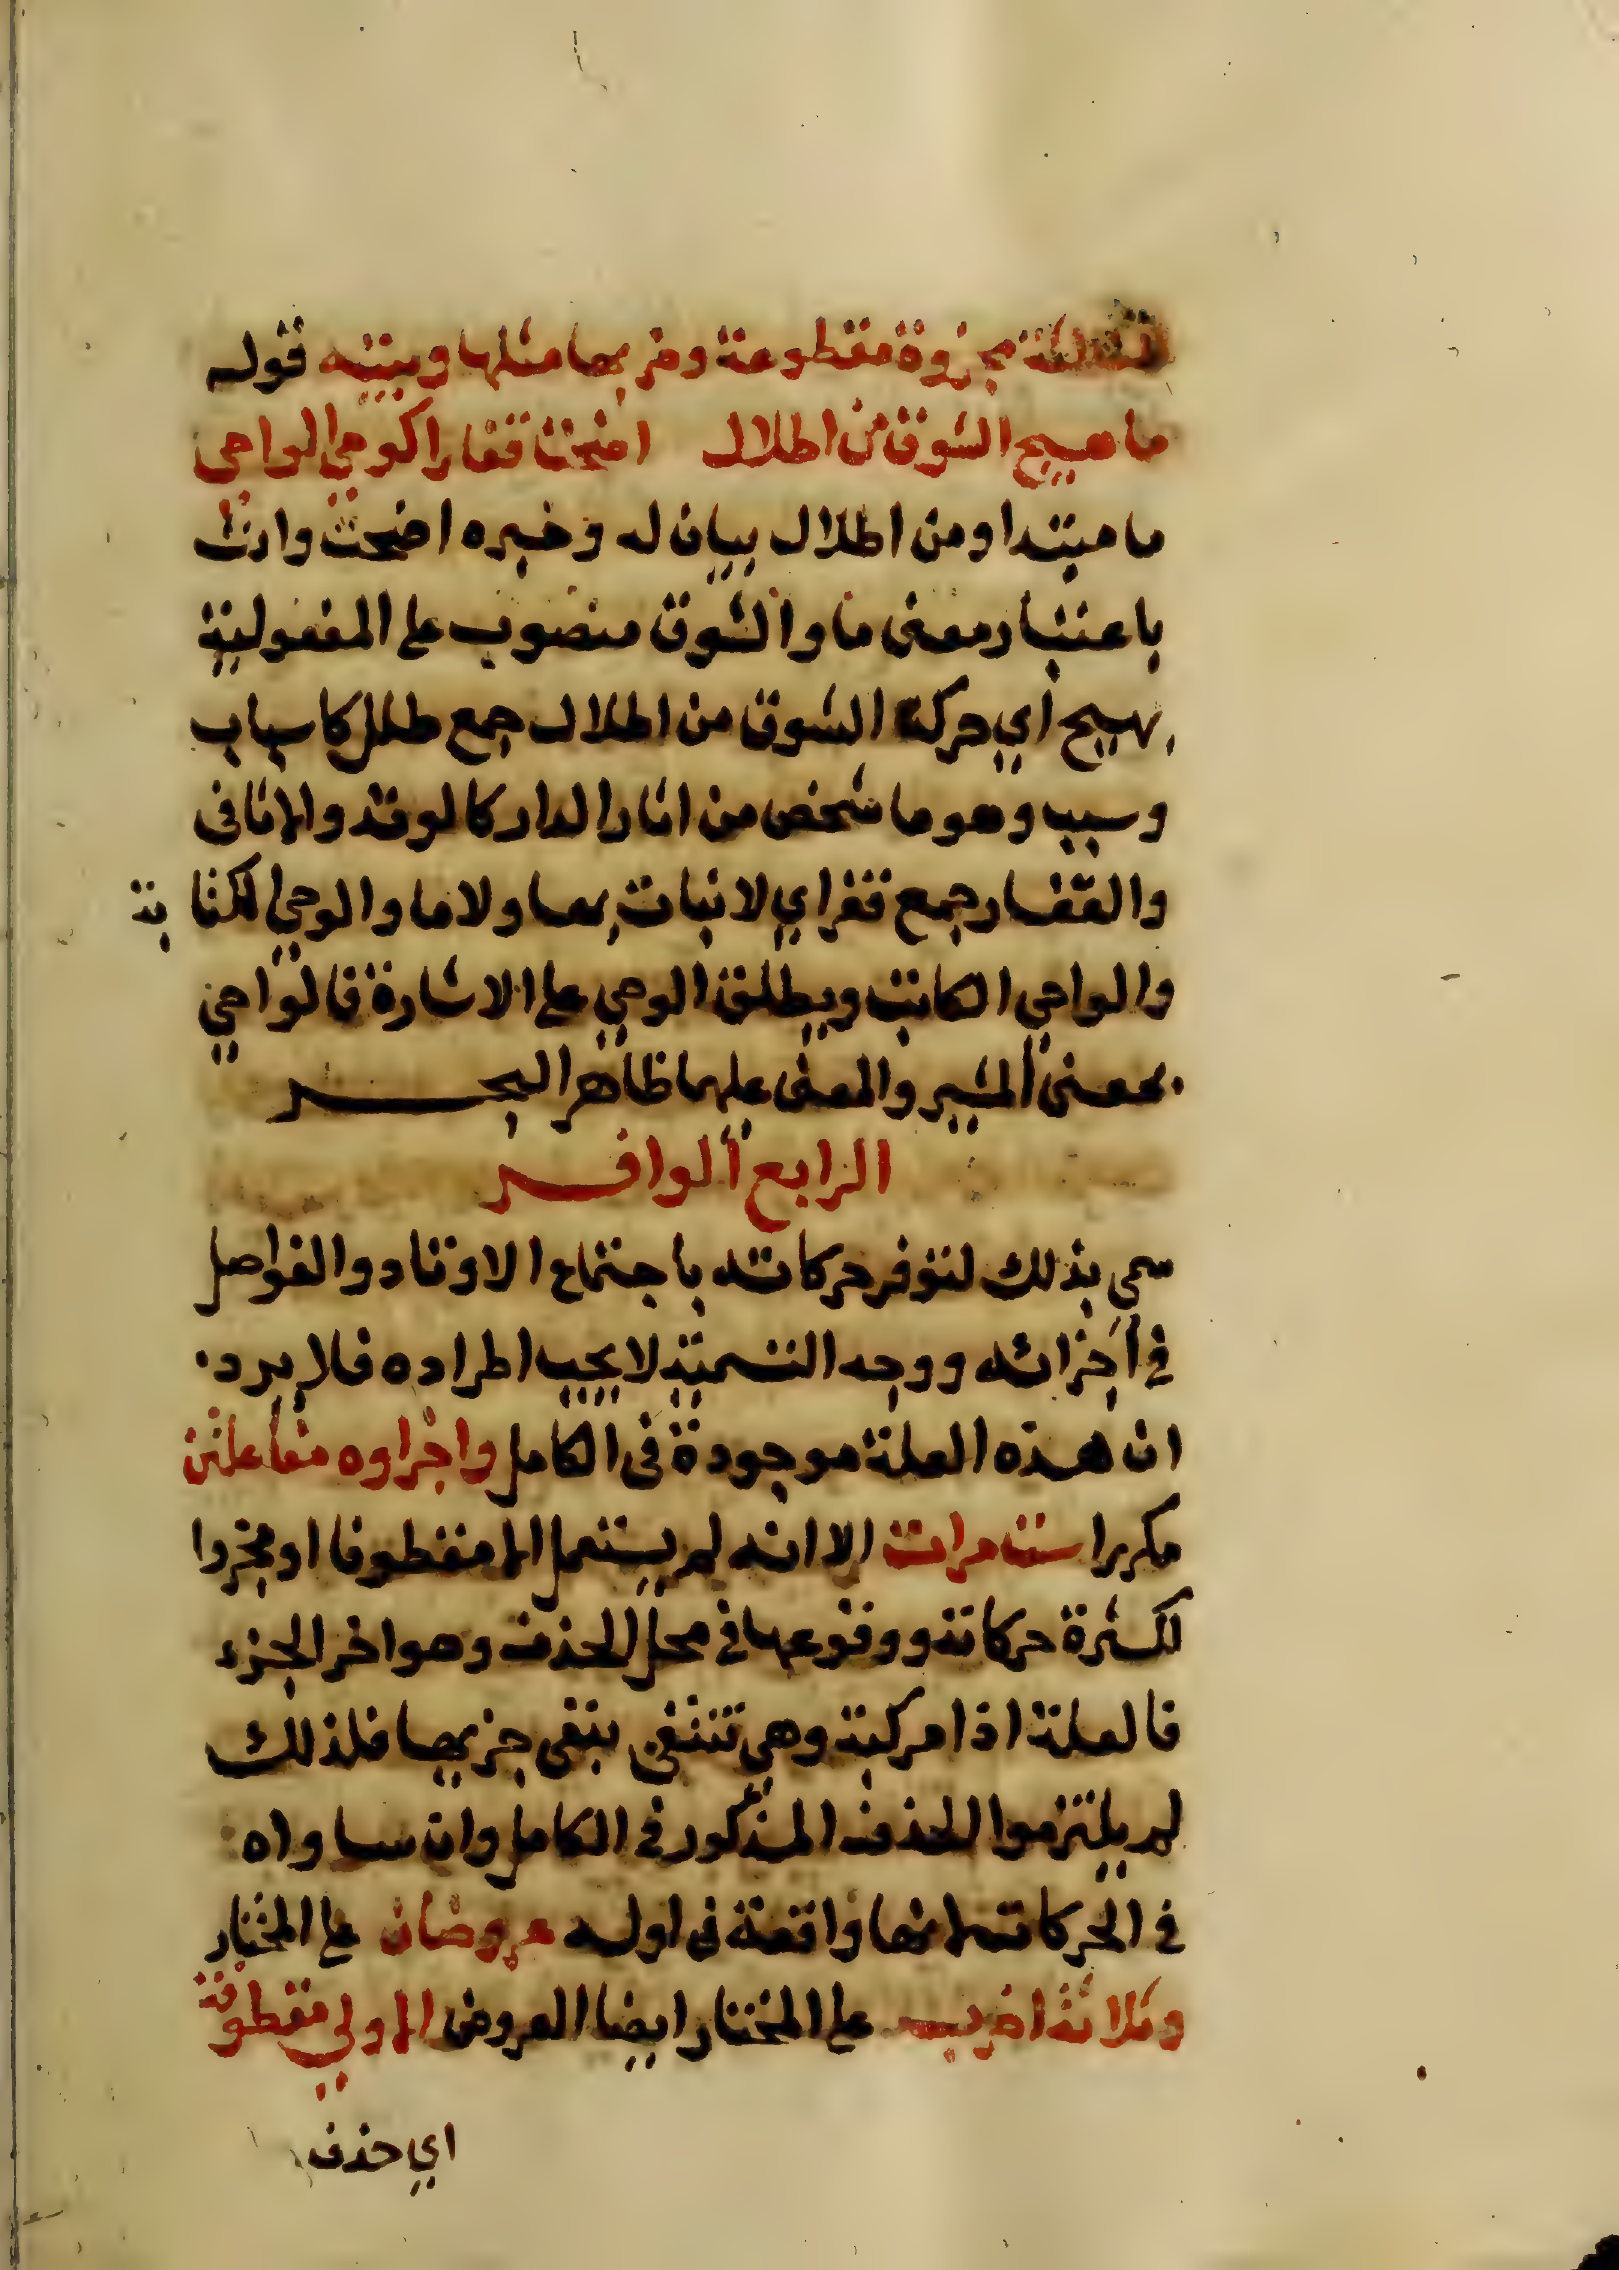 الثالثة مجزوة مقطوعة وضربها مثلها وبيته قوله
ما هيج الشوق من اطلال اضحت قفارا كوحي الواحي
ما مبتدا ومن اطلال بيان له وخبره اضحت وانث
باعتبار معنى ما والشوق منصوب على المفعولية
بهيج اي حركة الشوق من اطلال جمع طلل كاسباب
وسبب وهو ما شخص من اثار الدار كالوقد والاثافي
والقفار جمع قفر اي لا نبات بها ولا ما والوحي الكتابة
والواحي الكاتب ويطلق الوحي على الاشارة فالواحي
بمعنى المشير والمعنى عليهما ظاهر البحر
الرابع الوافر
سمي بذلك لتوفر حركاته باجتماع الاوتاد والفواصل
في اجزائه ووجه التسمية لا يجب اطراده فلا يرد
ان هذه العلة موجودة في الكامل واجزاوه مفاعلتن
مكررا ست مرات الا انه لم يستعمل الا مقطوفا او مجزوا
لكثرة حركاته ووقوعها في محل الحذف وهو اخر الجزء
فالعلة اذا مركبة وهي تنتفي بنفي جزيها فلذلك
لم يلتزموا الحذف المذكور في الكامل وان ساواه
في الحركات لانها واقعة في اوله عروضان على المختار
وثلاثة اضرب على المختار ايضا العروض الاولى مقطوفة
اي حذف